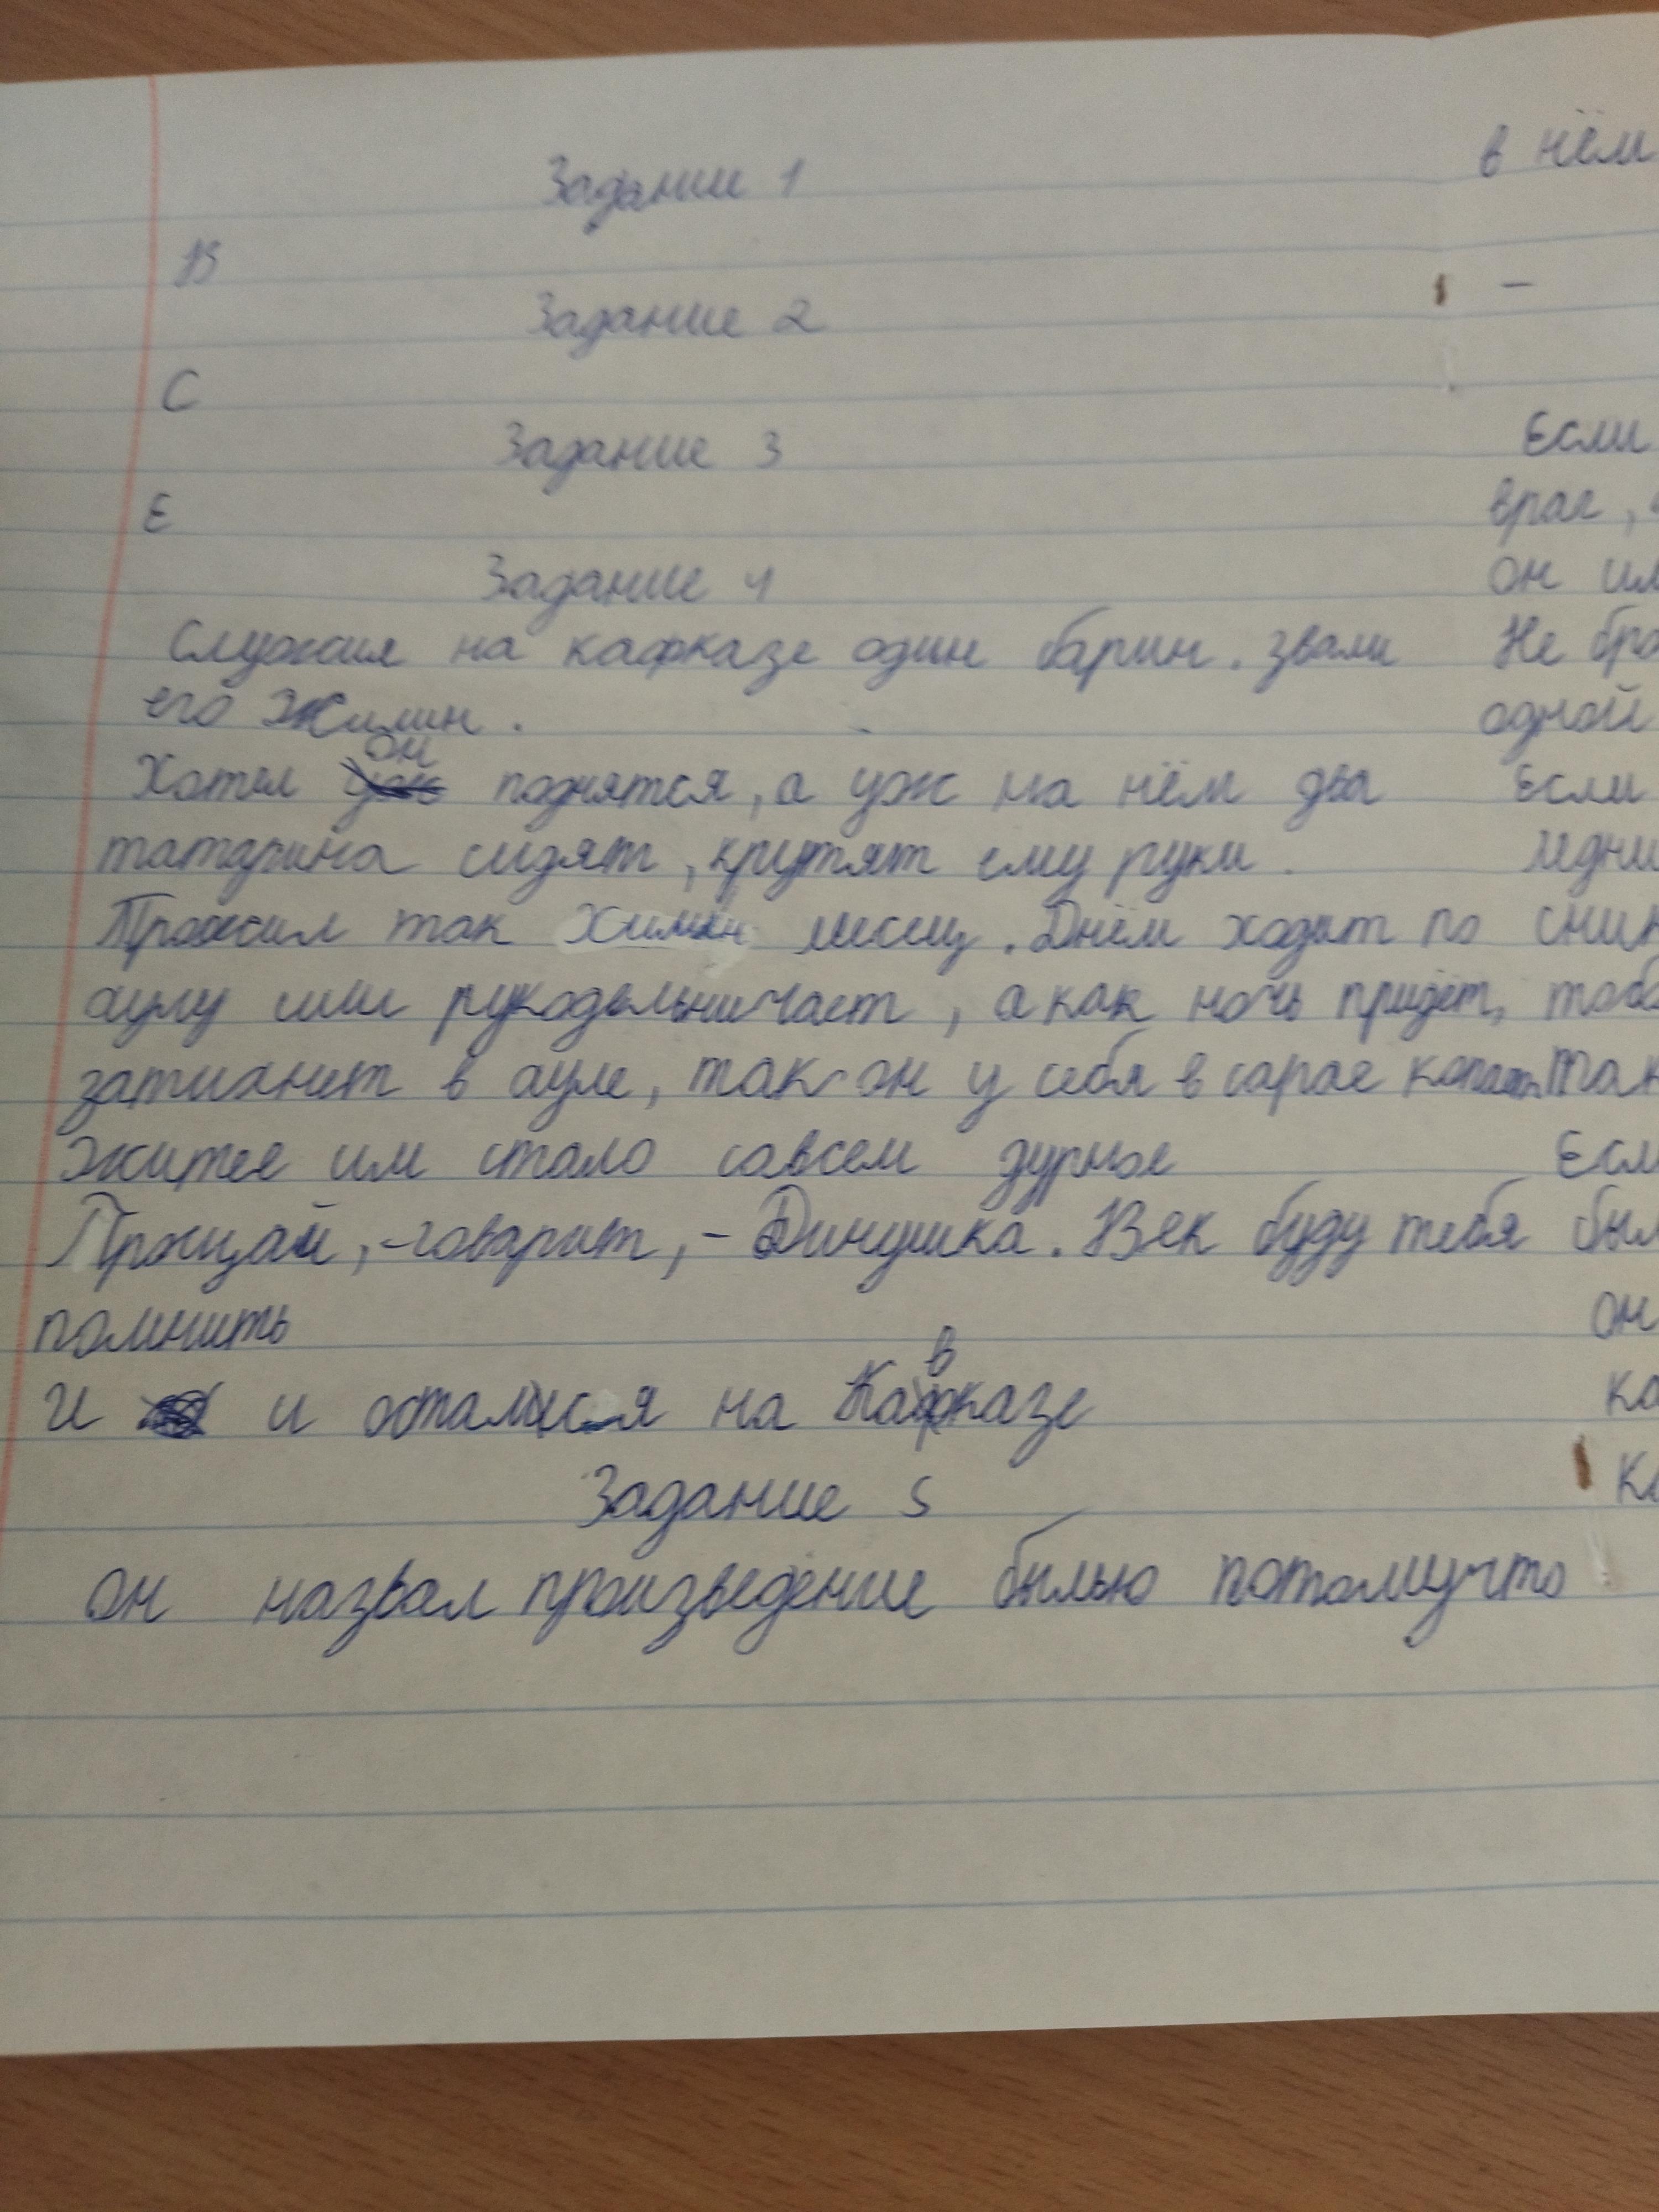 Задание 1
В
Задание 2
С
Задание 3
Е
Задание 4
Служил на кафказе один барин. звали
его Жилин.
Хотел он поднятся, а уж на нём два
татарина сидят, крутят ему руки.
Прожил так Жилин месец. Днём ходит по
аулу или рукодельничает, а как ночь придёт,
затихнет в ауле, так он у себя в сарае копает
Житье им стало совсем дурное
Прощай, -говорит, - Динушка. Век буду тебя
помнить
И и остался на Кавказе
Задание 5
Он назвал произведение былью потомучто
в нём
-
Если
враг,
он
Не
одной
Если
Если
он